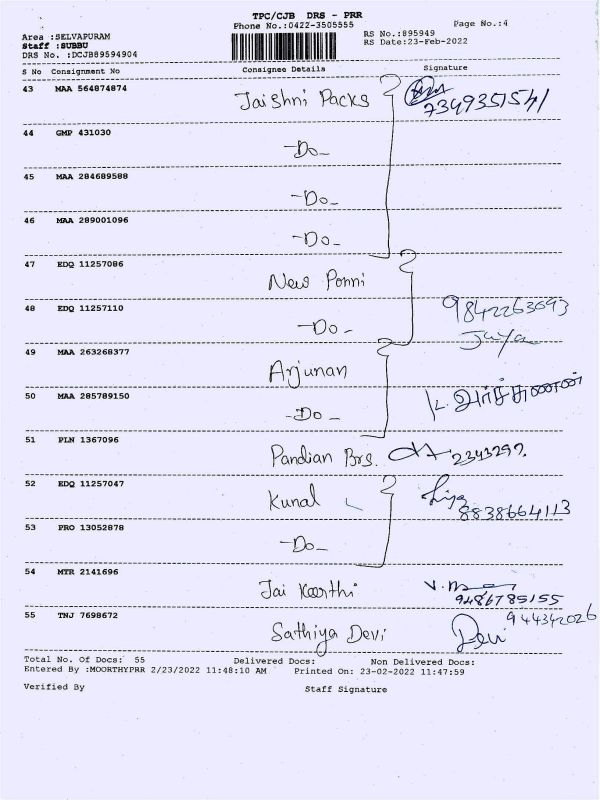 TPC/CJB DRS - PRR
Phone No.:0422-3505555
Page No.:4
Area :SELVAPURAM
RS No.:895949
Staff :SUBBU
RS Date:23-Feb-2022
DRS No. :DCJB89594904
S No Consignment No Consignee Details Signature
43 MAA 564874874 Jaishni Packs 7349351541
44 GMP 431030 -Do-
45 MAA 284689588 -Do-
46 MAA 289001096 -Do-
47 EDQ 11257086 New Ponni
48 EDQ 11257110 -Do- 9842263693
Jaya
49 MAA 263268377 Arjunan
50 MAA 285789150 -Do-
51 PLN 1367096 Pandian Brs. 2343297
52 EDQ 11257047 Kunal 8838664113
53 PRO 13052878 -Do-
54 MTR 2141696 Jai Keerthi 9486785155
55 TNJ 7698672 Sathiya Devi Devi 944342026
Total No. Of Docs: 55 Delivered Docs: Non Delivered Docs:
Entered By :MOORTHYPRR 2/23/2022 11:48:10 AM Printed On: 23-02-2022 11:47:59
Verified By Staff Signature